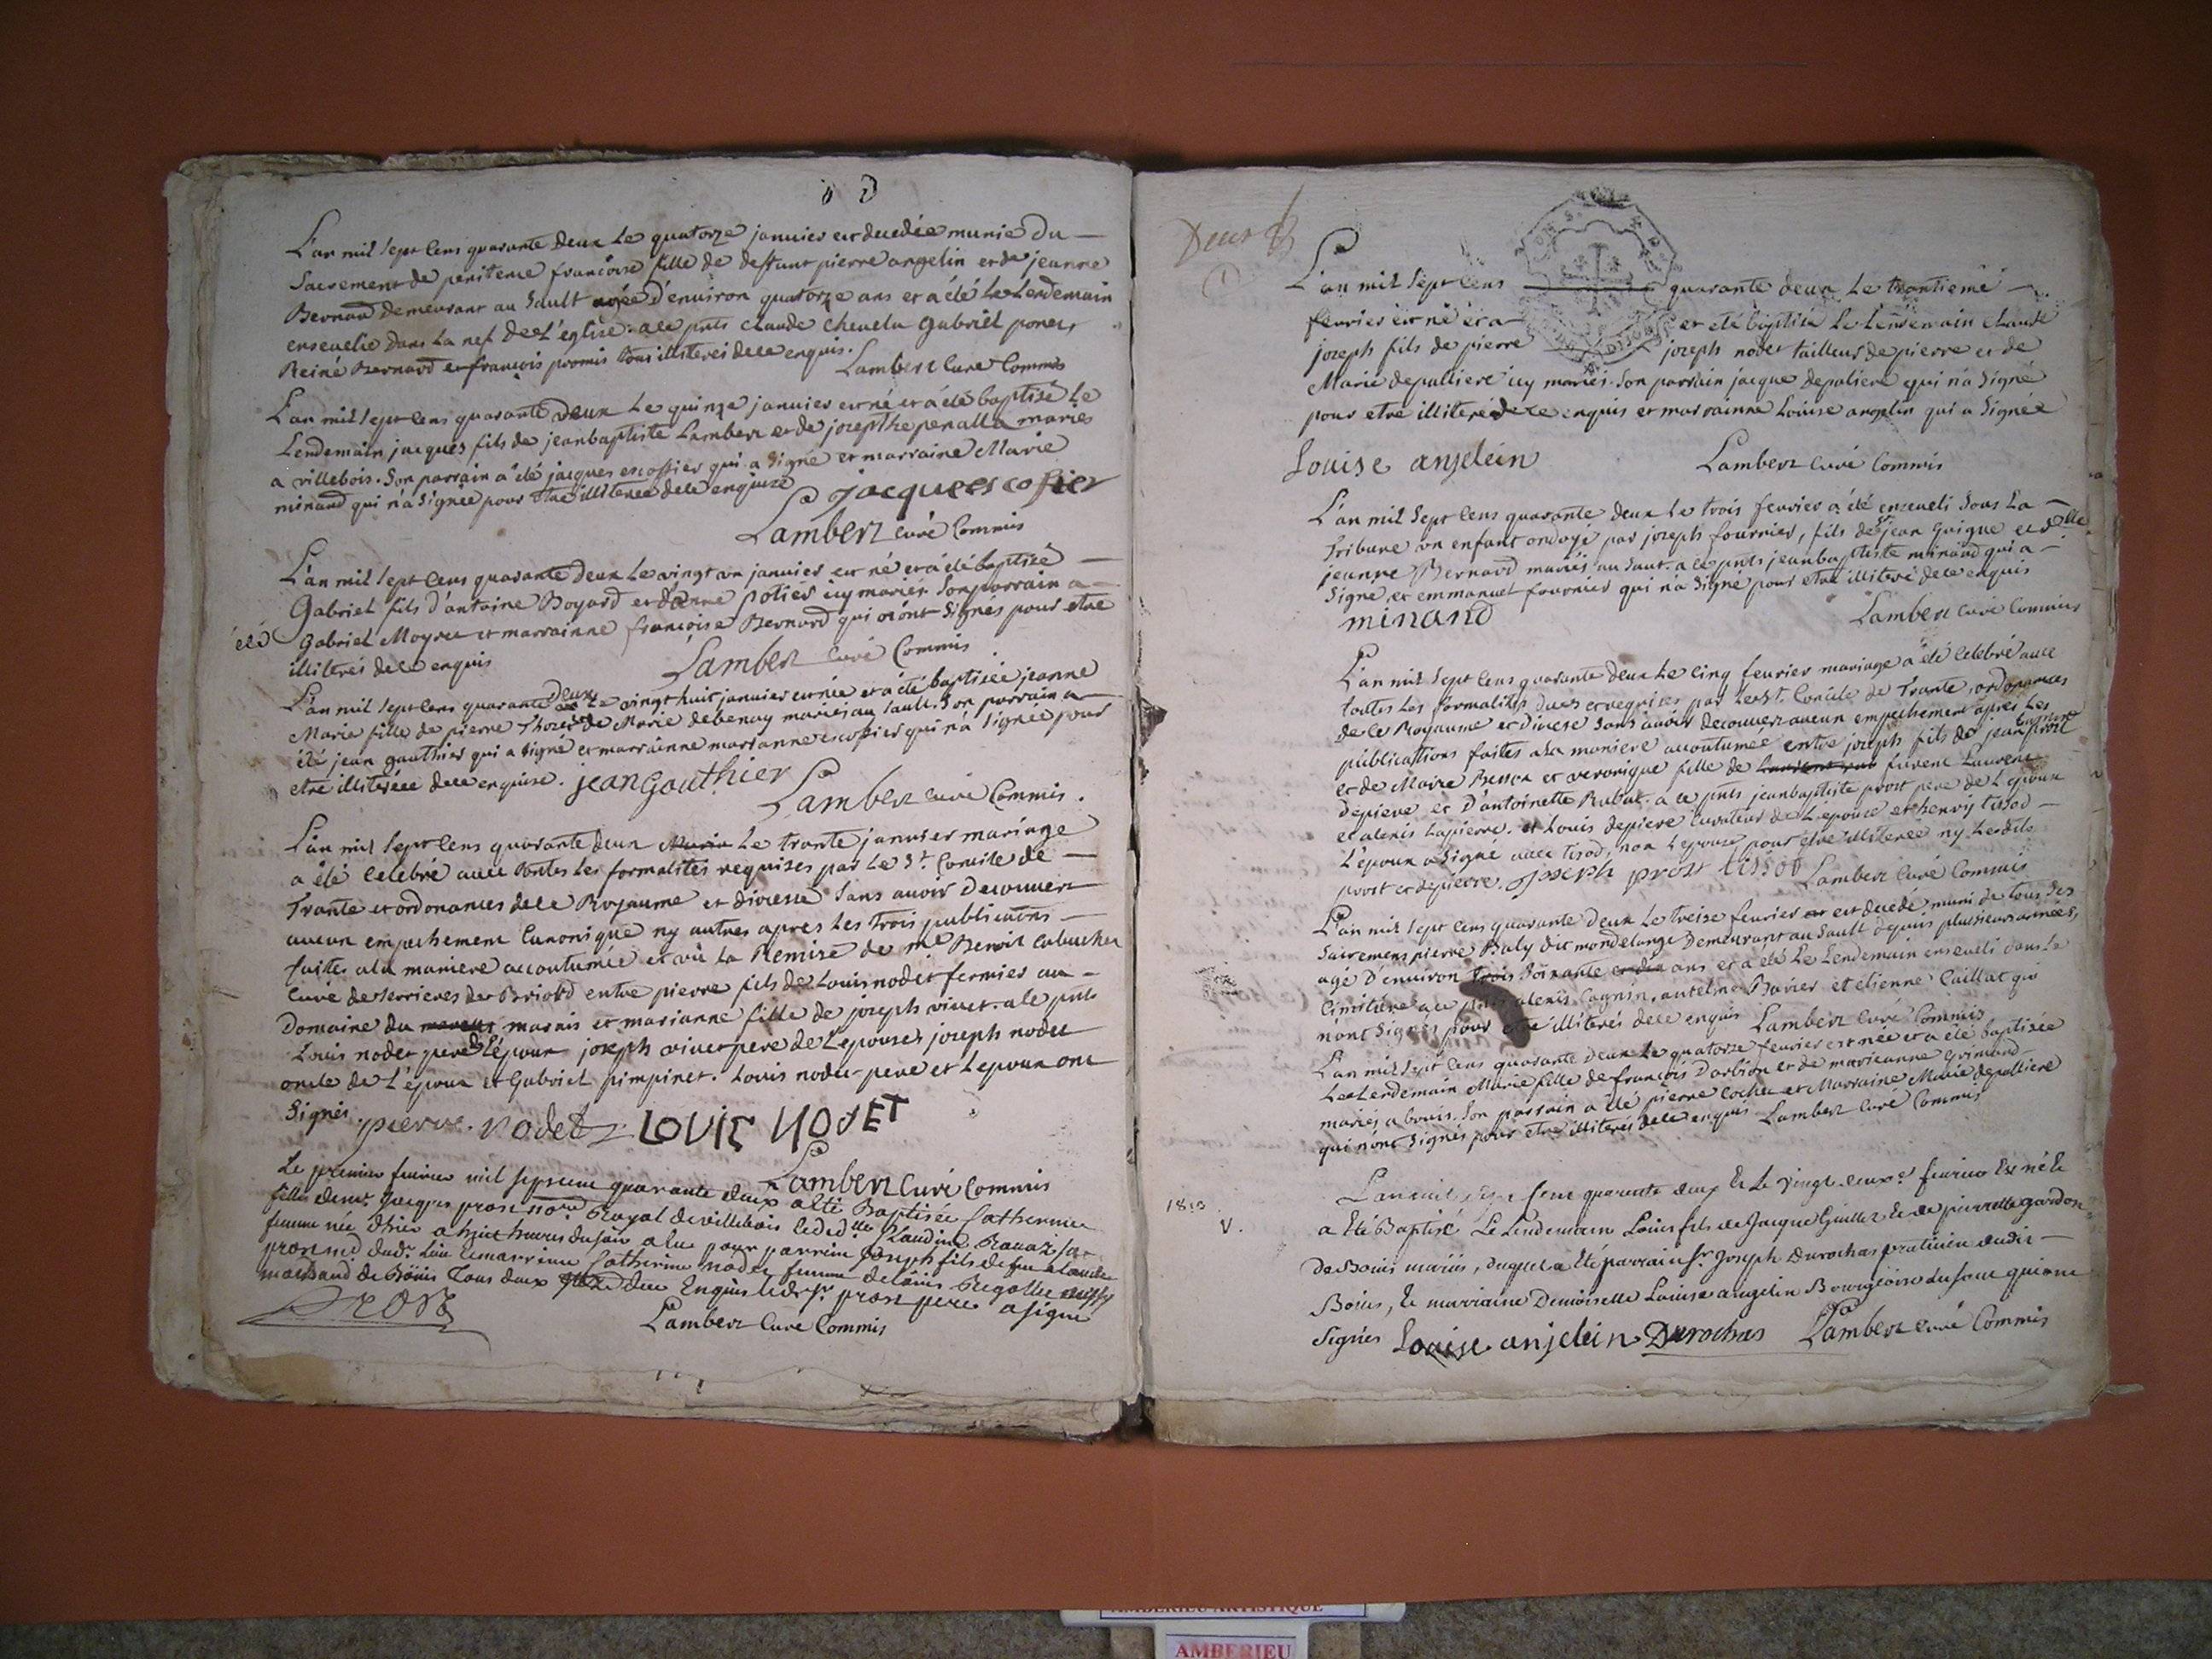 L'an mil sept cens quarante deux le quatorze januier est decedée munie du
sacrement de penitence françoise fille de deffunt pierre angelin et de jeanne
Bernard demeurant au sault agée d'enuiron quatorze ans et a été le lendemain
enseuelie dans la nef de L'eglise. a ce pnts claude cheuelu Gabriel poncet
Reiné Bernard et françois promis tous illiterés de ce enquis.
Lambert Curé Commis
L'an mil sept cens quarante deux le quinze januier est né et a été baptisé le
Lendemain jacques fils de jeanbaptiste Lambert et de josepthe penalla mariés
a villebois. Son parrain a été jacques escoffier qui a signé et marraine Marie
minand qui n'a signée pour etre illiterée de ce enquise
jacquescofier
Lambert curé Commis
L'an mil sept cens quarante deux le vingt un januier est né et a été baptisé
Gabriel fils d'antoine Boyard et d'anne potier icy mariés. Son parrain a
été Gabriel Moyret et marrainne françoise Bernard qui n'ont signés pour etre
illiterés de ce enquis
Lambert curé Commis
L'an mil sept cens quarante deux le vingt huit januier est née et a été baptisée jeanne
Marie fille de pierre Thozet de Marie debenay mariés au sault. Son parrain a
été jean gauthier qui a signé et marrainne marianne escoffier qui n'a signée pour
etre illiterée de ce enquise. jeanGauthier
Lambert curé Commis.
L'an mil sept cens quarante deux Le trante januier mariage
a été celebré auec toutes les formalités requises par le St. Concile de
Trante et ordonances de ce Royaume et diocese sans auoir decouuert
aucun empechement canonique ny autres apres les trois publications
faites a la maniere accoutumée et vû la Remise de mre Benoit cabuchet
curé de serrieres de Briord entre pierre fils de Louis nodet fermier au
Domaine du marais et marianne fille de joseph viuet. a ce pnts
Louis nodet pere de L'epoux joseph viuet pere de L'epouse, joseph nodet
oncle de L'epoux et Gabriel pimpinet. Louis nodet pere et L'epoux ont
signés. pierre. nodet LOVIS NODET
Lambert Curé Commis
Le premier feurier mil sept cent quarante deux a été Baptisée Catherine
fille de mr. Jacques prost nore Royal de villebois et de dlle Claudine Rauaz sa
femme née d'hier a huit heures du soir a eu pour parrain Joseph fils de feu Claude
prost md dudt. lieu et marrainne Catherine nodet femme de Louis Regollet
marchand de Boüis tous deux de ce enquis ledt. sr. prost pere a signé
PROST
Lambert Curé Commis
Deux
L'an mil sept cens quarante deux le trantieme
feurier est né et a et eté baptisé le lendemain claude
joseph fils de pierre joseph nodet tailleur de pierre et de
Marie depalliere icy mariés. Son parrain jacque depaliere qui n'a signé
pour etre illiteré de ce enquis et marrainne Louise angelin qui a signée
Louise anjelein
Lambert curé Commis
L'an mil sept cens quarante deux le trois feurier a été enseueli sous la
Tribune un enfant ondoyé par joseph fournier, fils de sr jean Guigue et dlle
jeanne Bernard mariés au saut. a ce pnts jeanbaptiste minand qui a
signé et emmanuel fournier qui n'a signé pour etre illiteré de ce enquis
minand
Lambert curé Commis
L'an mil sept cens quarante deux le cinq feurier mariage a été celebré auec
toutes les formalités dues et requises par le St. Concile de Trante, ordonances
de ce Royaume et diocese sans auoir decouuert aucun empechement apres les
publications faites a la maniere accoutumée entre joseph fils de jeanbaptiste prost
et de Marie Besson et veronique fille de furont Laurent
depiere et D'antoinette Rubat. a ce pnts jeanbaptiste prost pere de L'epoux
et alexis Lapierre. et Louis depiere curateur de L'epouse et henry tissod
L'epoux a signé auec tisod, non L'epouse pour etre illiterée ny lesdits
prost et depierre. Joseph prost tissot Lambert Curé Commis
L'an mil sept cens quarante deux le treise feurier est decedé muni de tous les
sacremens pierre Baly dit mondelange demeurant au sault depuis plusieurs années,
agé d'enuiron soixante ans et a été le lendemain enseueli dans le
cimitiere a ce pnts alexis Cagnin, antelme Barier et etienne Caillat qui
n'ont signés pour etre illiterés de ce enquis Lambert Curé Commis
L'an mil sept cens quarante deux le quatorze feurier est née et a été baptisée
Le Lendemain Marie fille de françois Darbion et de marieanne Grimand
mariés a bouis. Son parrain a été pierre cochet et Marraine Marie depalliere
qui n'ont signés pour etre illiterés de ce enquis Lambert Curé Commis
18.0
V.
L'an mil sept cent quarente deux et le vingt deuxe. feurier est né et
a Eté Baptisé Le Lendemain Louis fils de Jacque Guillet et de pierrette gardon
de Bouis mariés, duquel a Eté parrain Sr. Joseph Durochas praticien audit
Boius, et marraine Demoiselle Louise angelin Bourgeoise du saut qui ont
signés Louise anjelein Durochas Lambert curé Commis
AMBERIEU ARTISTIQUE
AMBERIEU